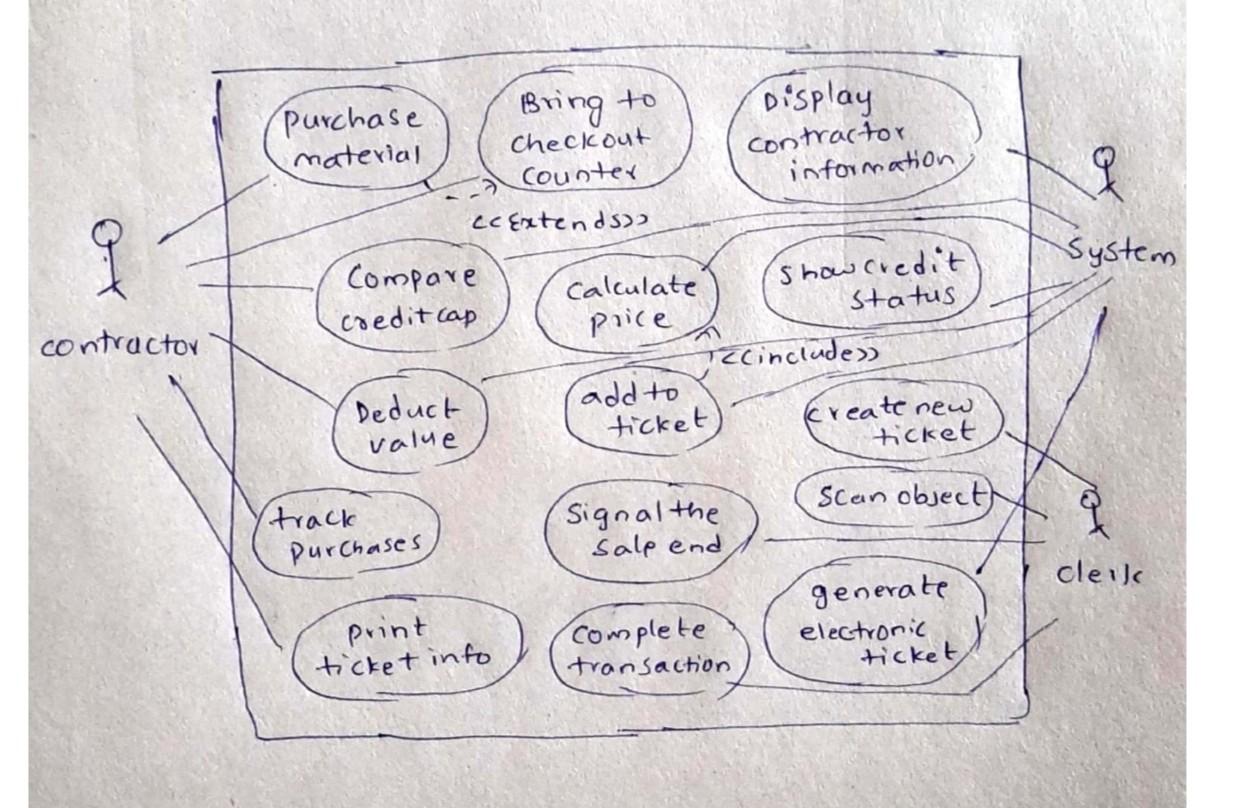 Purchase
material
Bring to
checkout
counter
Display
contractor
information
<<Extends>>
Compare
creditcap
Calculate
price
show credit
status
System
contractor
<<include>>
Deduct
value
add to
ticket
create new
ticket
track
purchases
Signal the
sale end
Scan object
clerk
print
ticket info
complete
transaction
generate
electronic
ticket